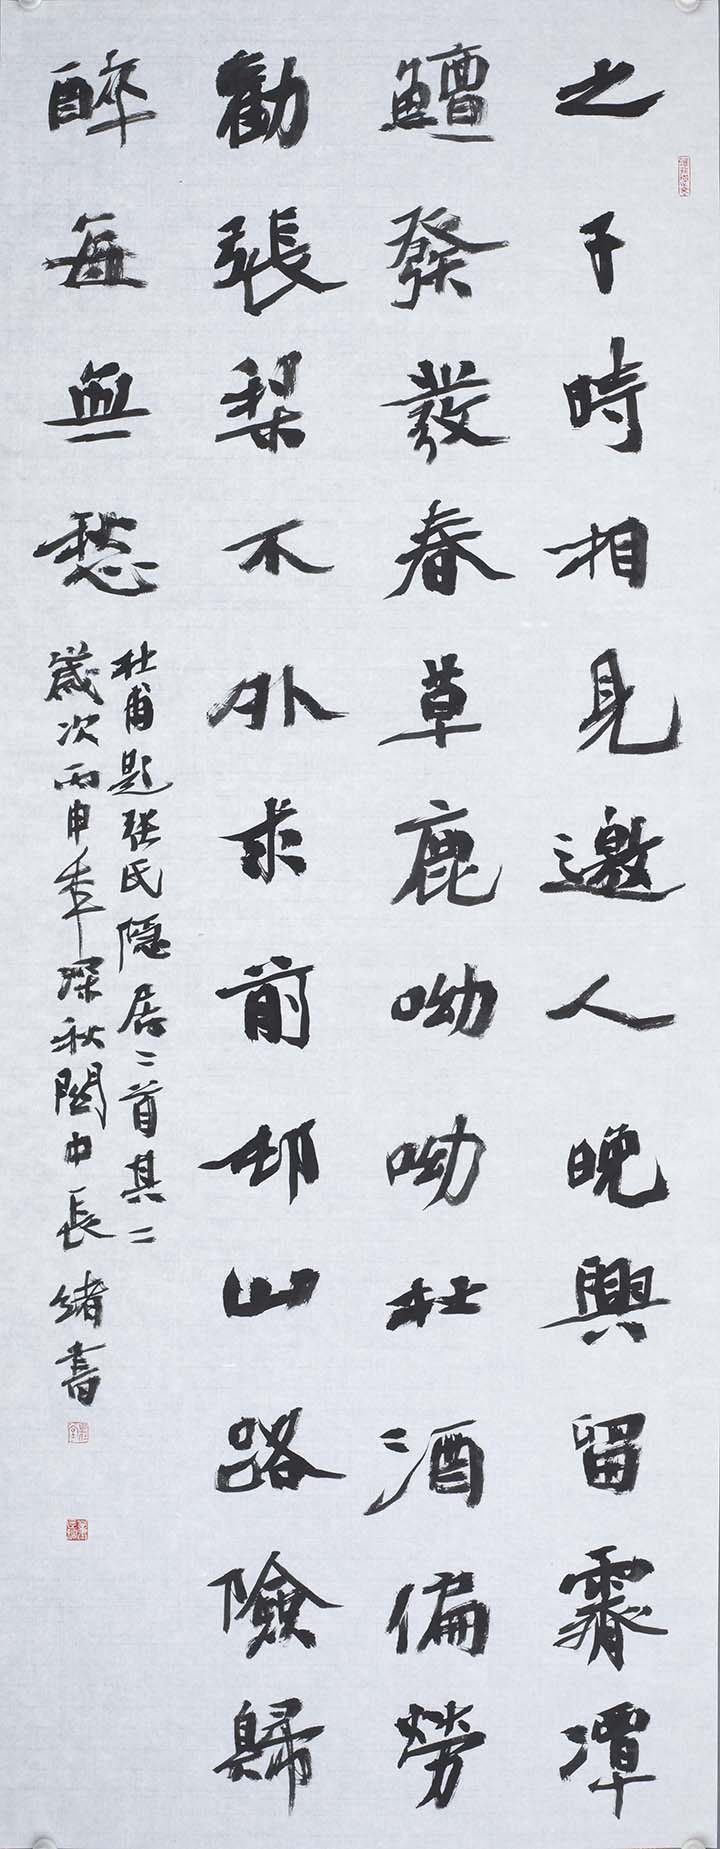 之子時相見邀人晚興留霽潭
鱣發發春草鹿呦呦杜酒偏勞
勸張梨不外求前邨山路險歸
醉每無愁
杜甫題张氏隱居二首其二
歲次丙申年深秋關中長緒書